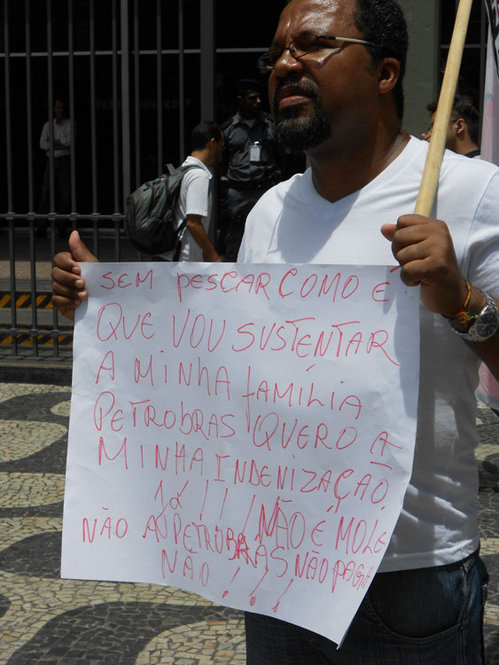 SEM PESCAR COMO E
QUE VOU SUSTENTAR
A MINHA fAMÍLIA
PETROBRAS QUERO A
MINHA INDENIZAÇÃO
JÁ!!! NÃO É MOLE
NÃO A PETROBRÁS NÃO PAGA
NÃO!!!